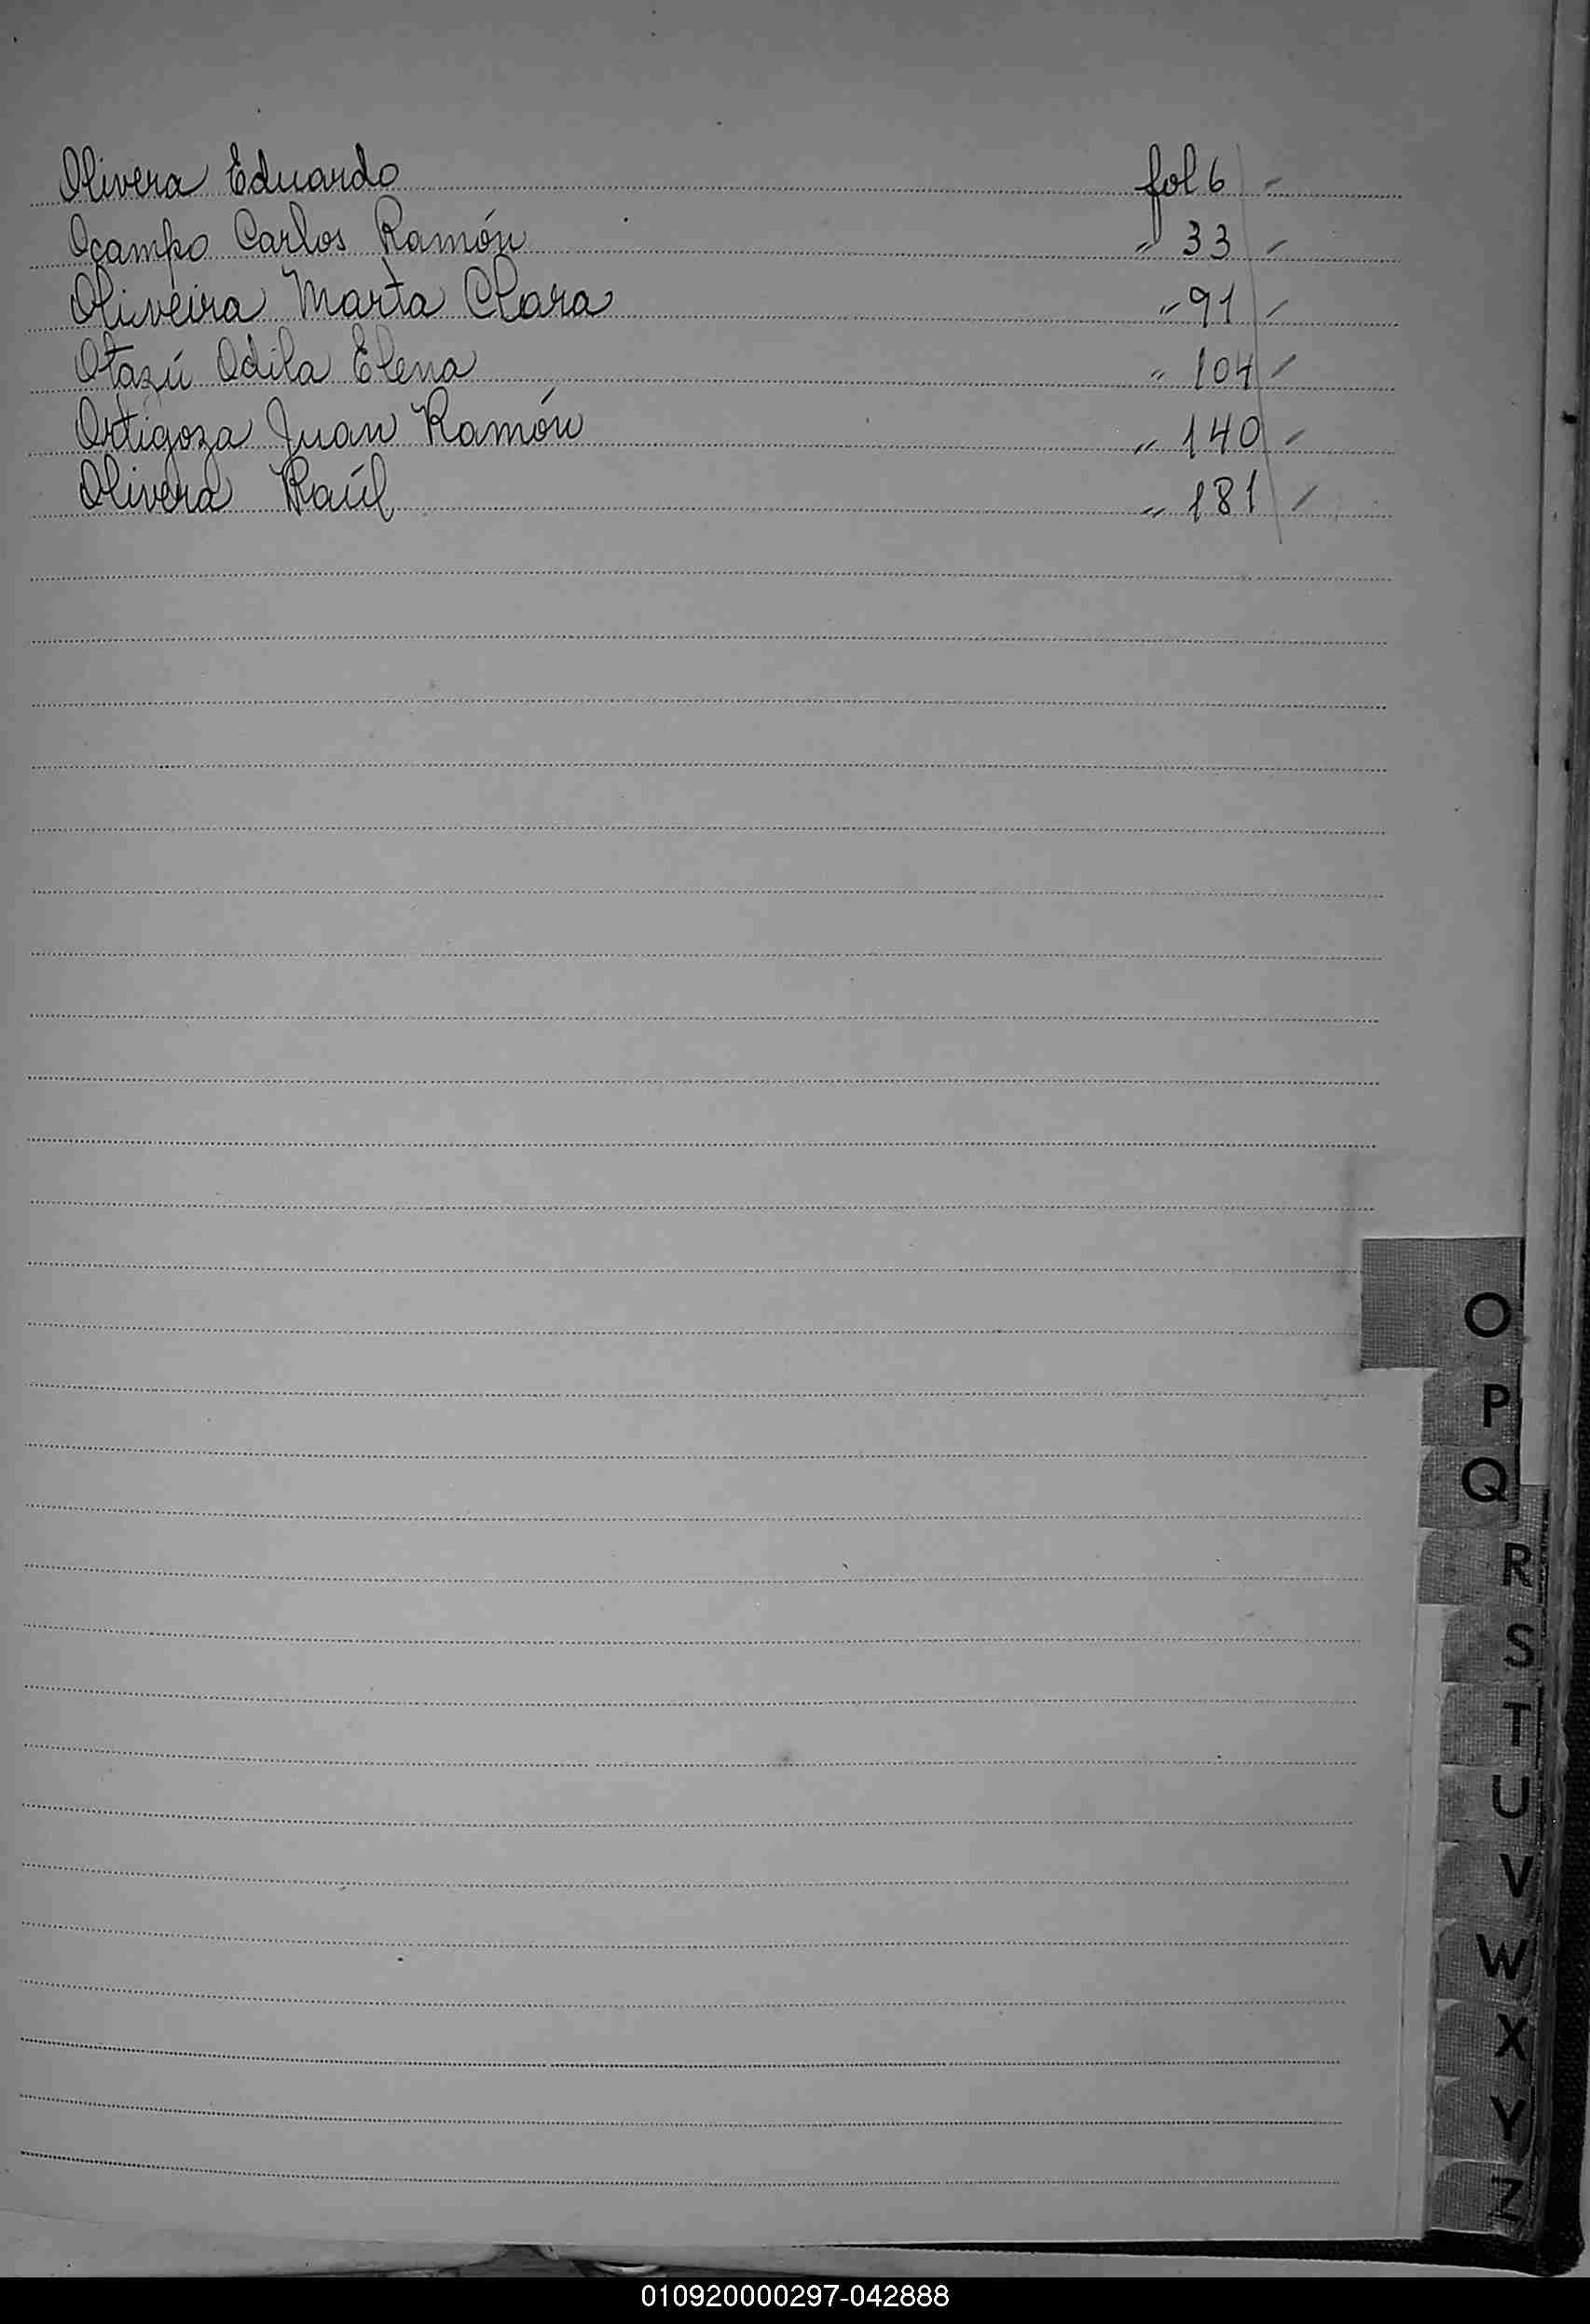 Olivera Eduardo fol 6 -
Ocampo Carlos Ramón " 33 -
Oliveira Marta Clara " 91 -
Otazú Odila Elena " 104 -
Ortigoza Juan Ramón " 140 -
Olivera Raúl " 181 -
O
P
Q
R
S
T
U
V
W
X
Y
Z
010920000297-042888